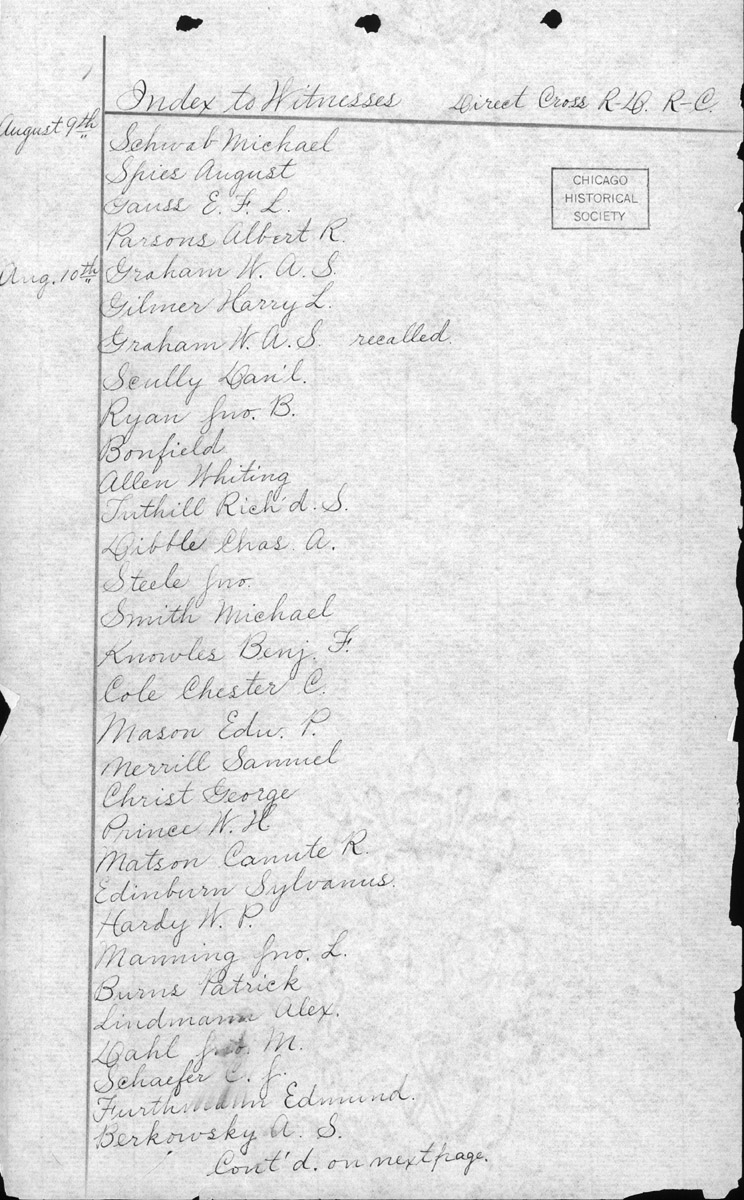 Index to Witnesses Direct Cross R-D. R-C.
August 9th Schwab Michael
Spies August
CHICAGO
HISTORICAL
SOCIETY
Gauss E. F. L.
Parsons Albert R.
Aug. 10th Graham W. A. S.
Gilmer Harry L.
Graham W. A. S. recalled.
Scully Dan'l.
Ryan Jno. B.
Bonfield
Allen Whiting
Tuthill Rich'd. S.
Dibble Chas. A.
Steele Jno.
Smith Michael
Knowles Benj. F.
Cole Chester C.
Mason Edw. P.
Merrill Samuel
Christ George
Prince W. H
Matson Canute R.
Edinburn Sylvanus.
Hardy W. P.
Manning Jno. L.
Burns Patrick
Lindmann Alex.
Dahl Jno. M.
Schaefer C. J.
Furthmann Edmund.
Berkowsky A. S.
Cont'd. on next page.